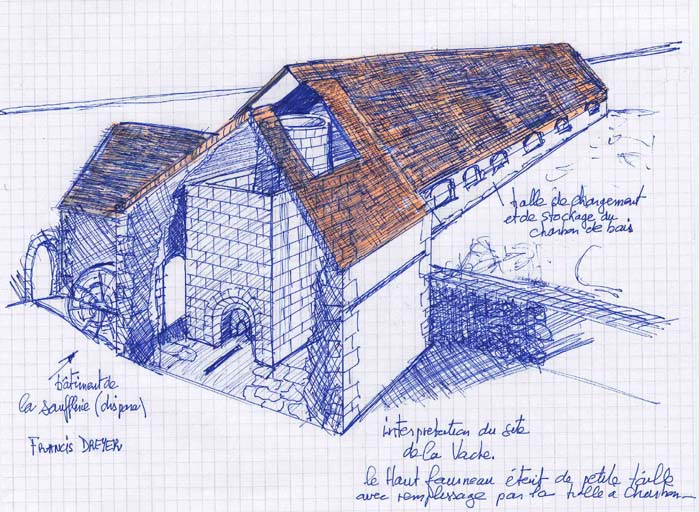 halle de chargement
et de stockage du
charbon de bois
bâtiment de
la soufflerie (disparu)
FRANCIS DREYER
interpretation du site
de la Vache.
le Haut fourneau était de petite taille
avec remplissage par la halle à Charbon